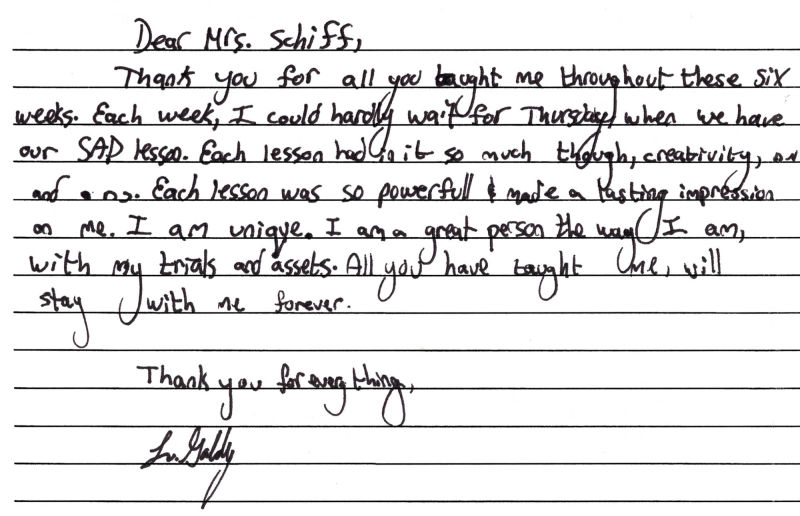 Dear Mrs. Schiff,
Thank you for all you taught me throughout these six
weeks. Each week, I could hardly wait for Thursday when we have
our SAP lesson. Each lesson had in it so much though, creativity,
and Each lesson was so powerfull & made a lasting impression
on me. I am unique. I am a great person the way I am,
with my trials and assets. All you have taught me, will
stay with me forever.
Thank you for everything,